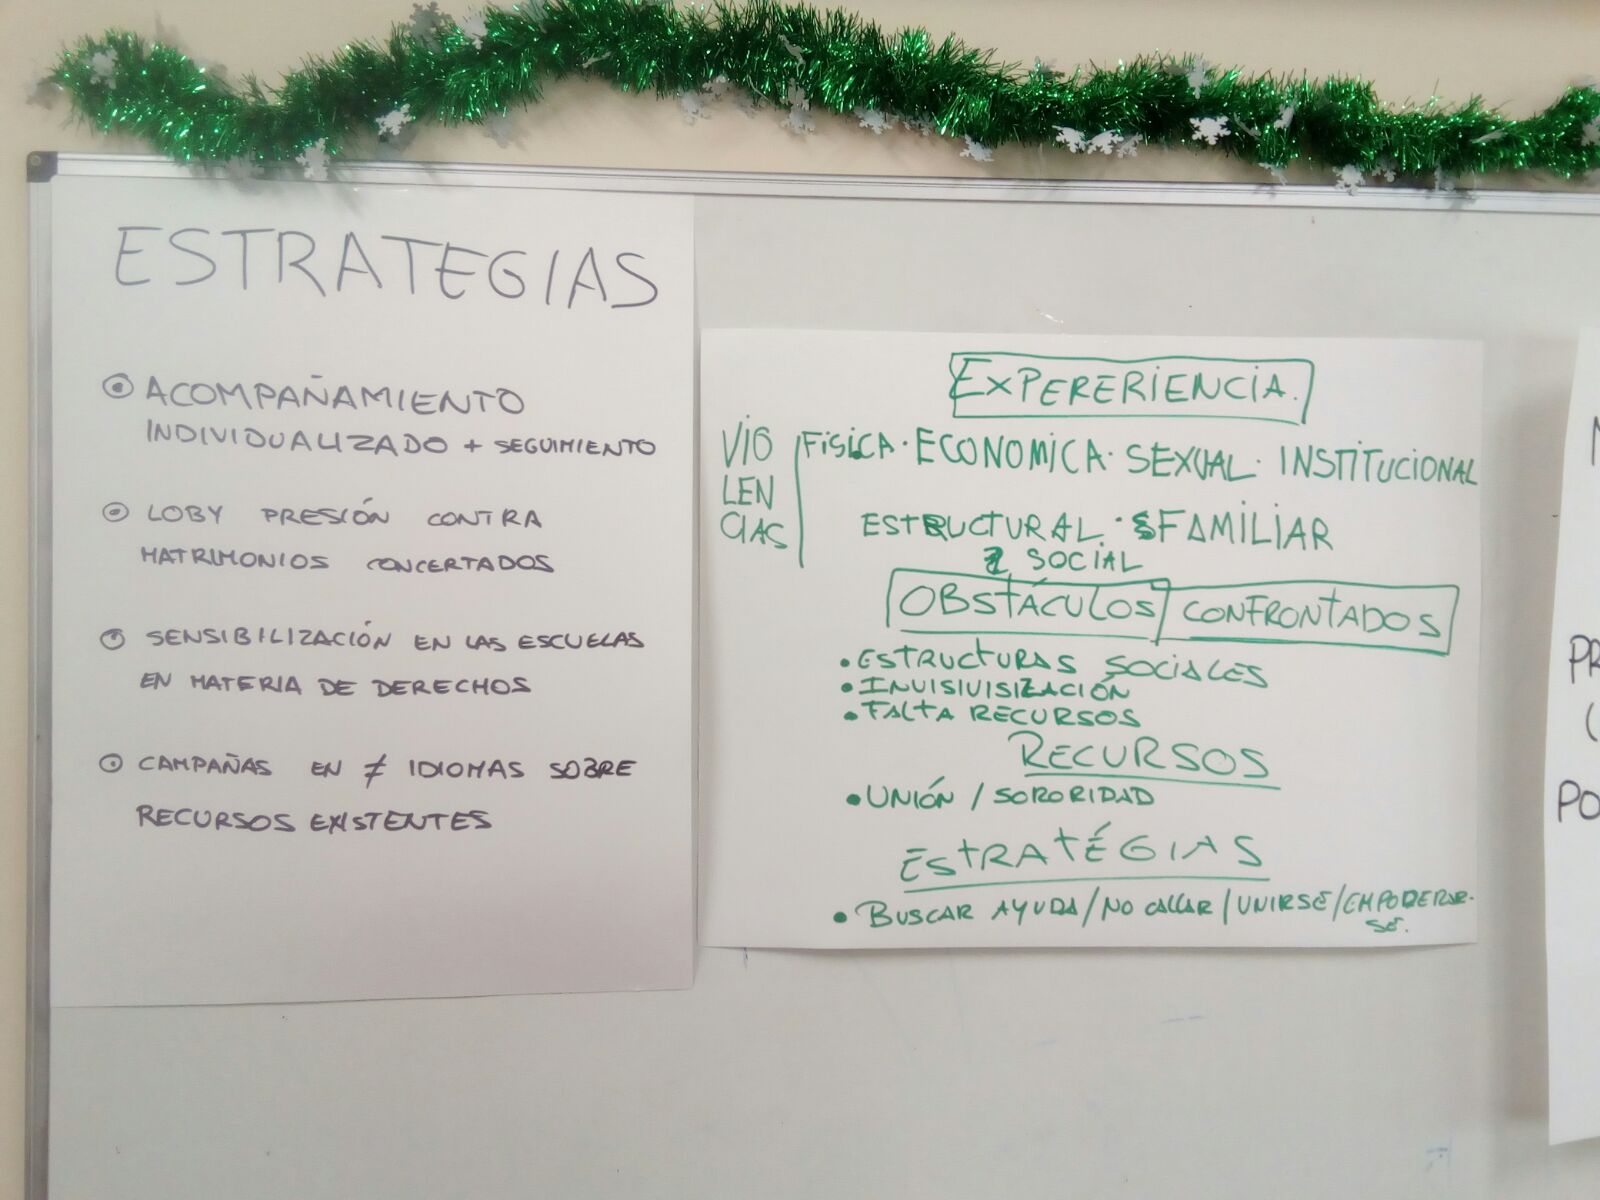 ESTRATEGIAS
⊙ ACOMPAÑAMIENTO
INDIVIDUALIZADO + SEGUIMIENTO
⊙ LOBY PRESIÓN CONTRA
MATRIMONIOS CONCERTADOS
⊙ SENSIBILIZACIÓN EN LAS ESCUELAS
EN MATERIA DE DERECHOS
⊙ CAMPAÑAS EN ≠ IDIOMAS SOBRE
RECURSOS EXISTENTES
EXPERERIENCIA.
VIO
LEN
CIAS
FÍSICA · ECONOMICA · SEXUAL · INSTITUCIONAL
ESTRUCTURAL · FAMILIAR
SOCIAL
OBSTÁCULOS CONFRONTADOS
• ESTRUCTURAS SOCIALES
• INVISIVISIZACIÓN
• FALTA RECURSOS
RECURSOS
• UNIÓN / SORORIDAD
ESTRATÉGIAS
• BUSCAR AYUDA / NO CALLAR / UNIRSE / EMPODERAR-
SE.
PR
(
PO